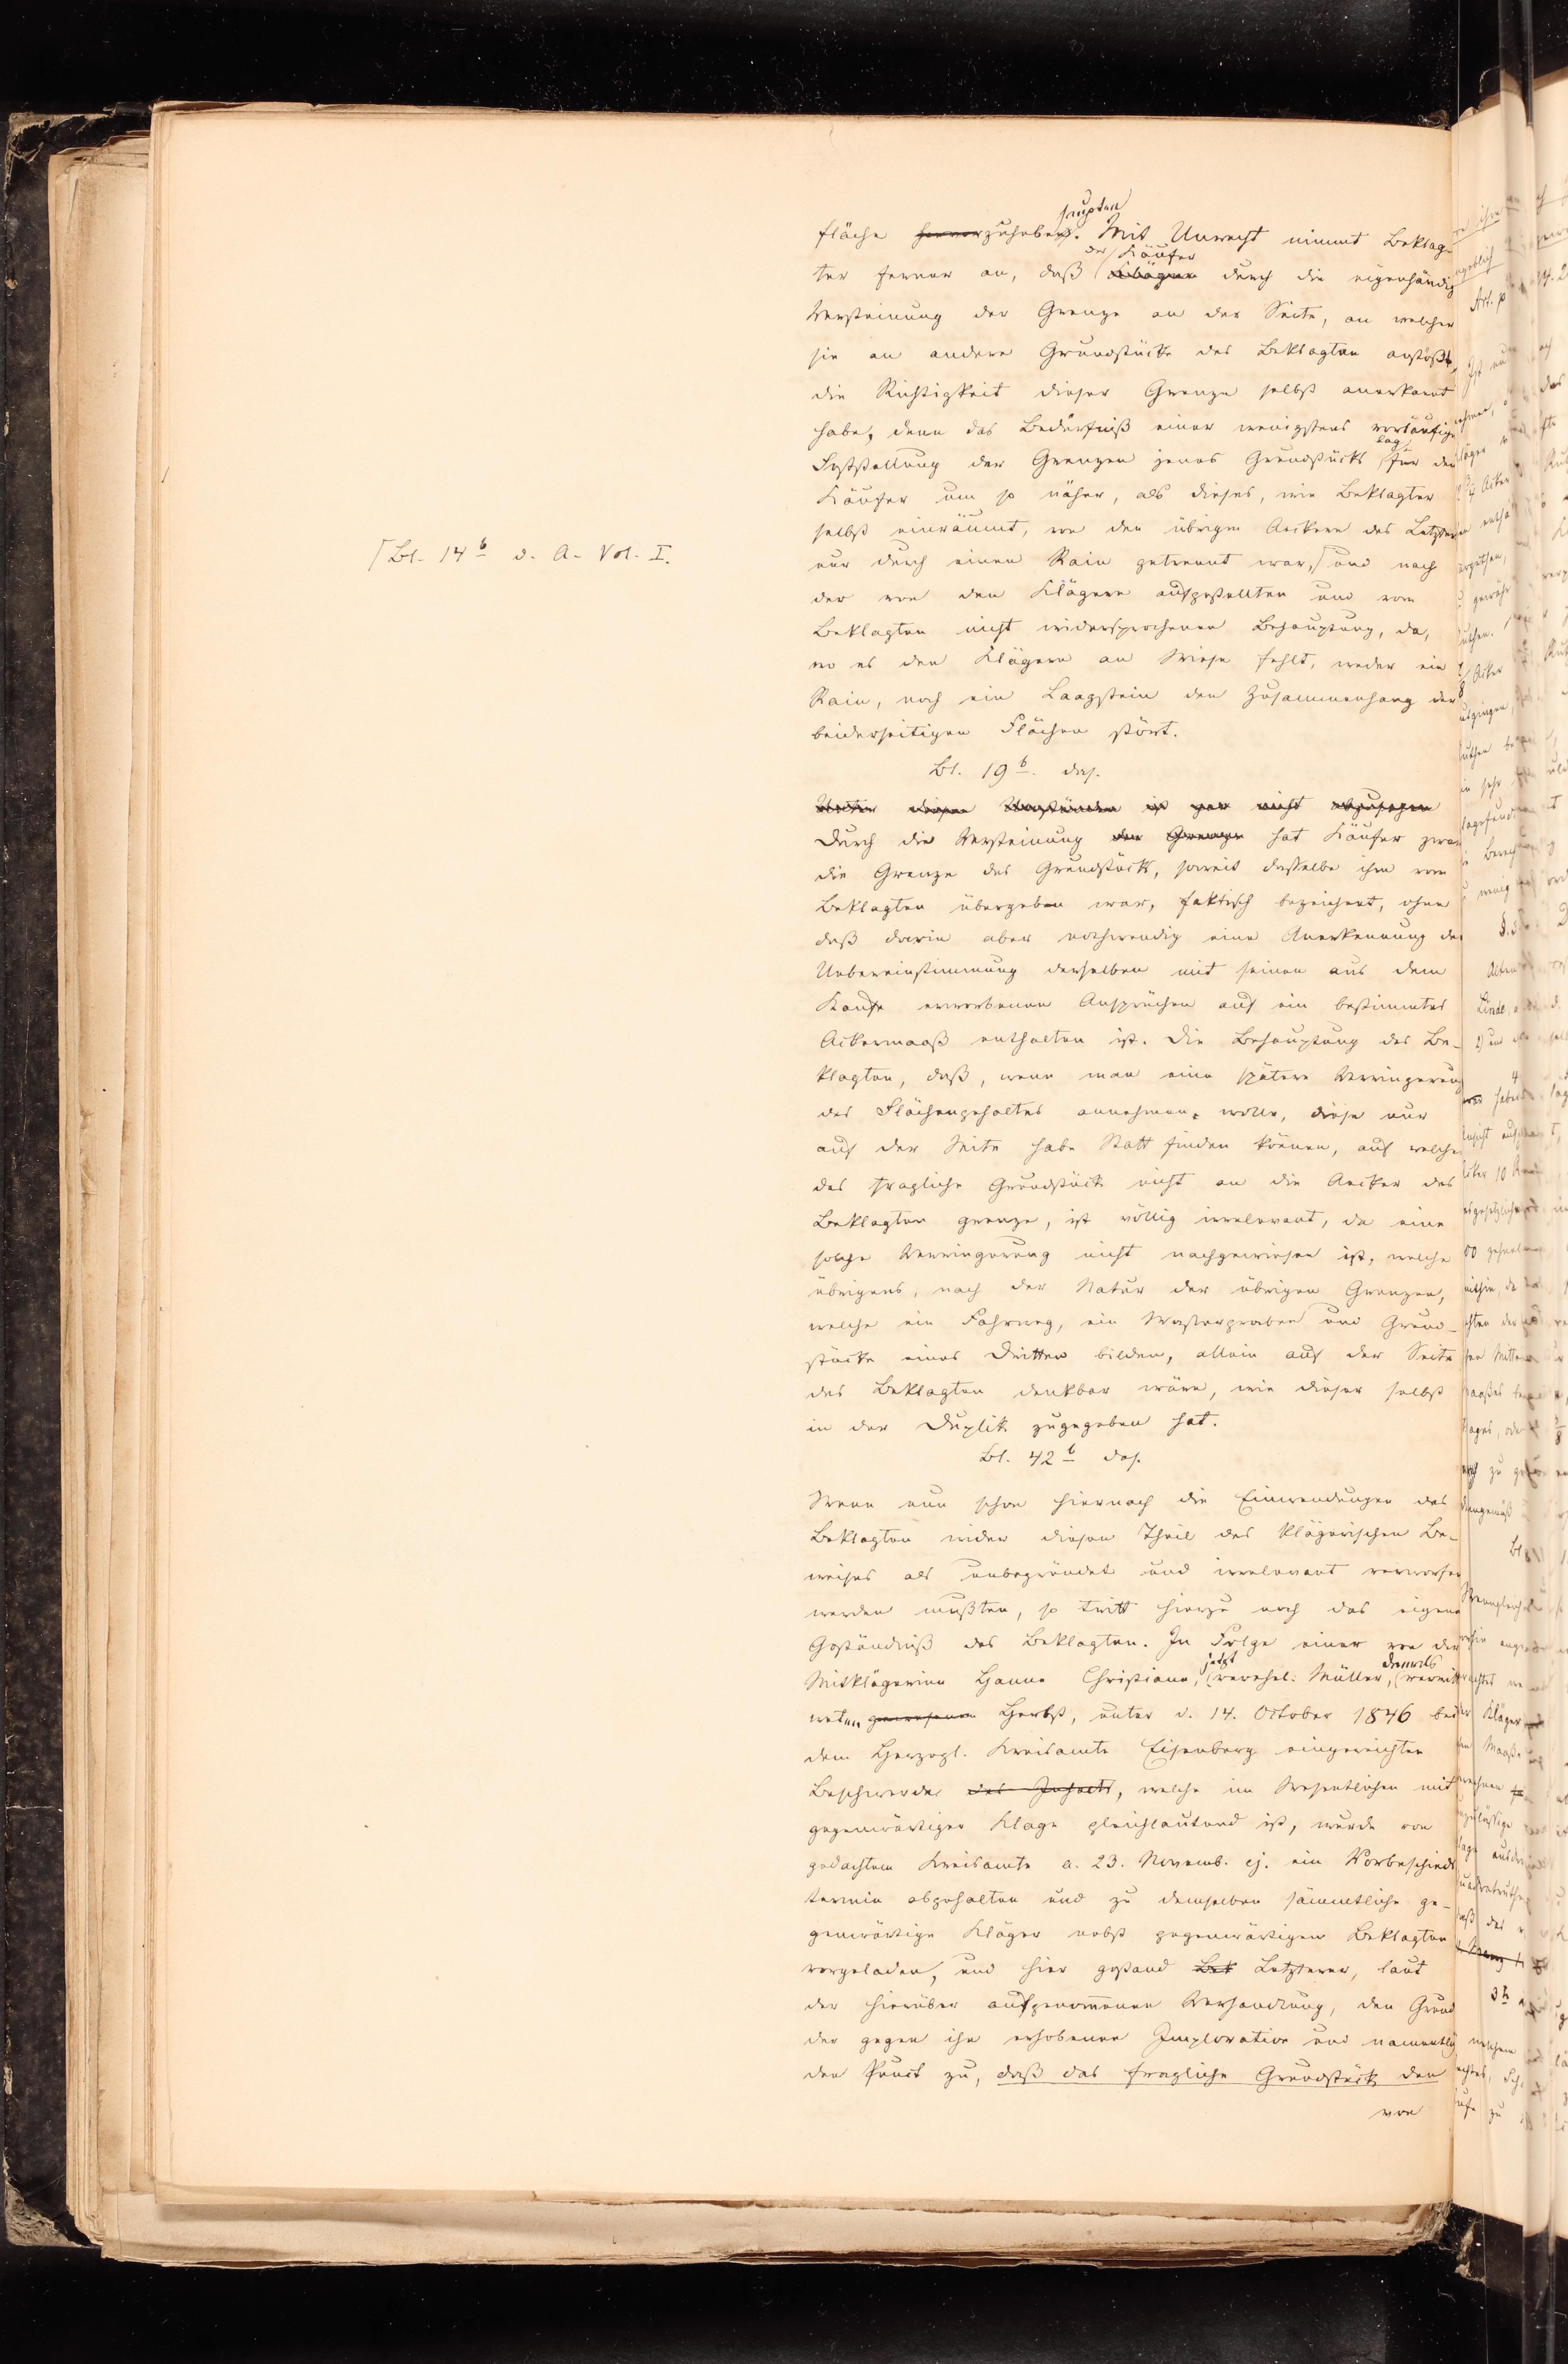 fläche ~~hervor~~zuheben. Mit Unrecht nimmt Beklag-
der Käufer
ter ferner an, daß ~~Kläger~~ durch die eigenhändig
Versteinung der Grenze an der Seite, an welcher
sie an andere Grundstücke des Beklagten anstößt,
die Richtigkeit dieser Grenze selbst anerkannt
habe, denn das Bedürfniß einer wenigstens vorläufige
lag
Feststellung der Grenzen jenes Grundstücks für den
Käufer um so näher, als dieses, wie Beklagter
selbst einräumt, von den übrigen Aeckern des Letztern
Bl. 14 b d. A. Vol. I.
nur durch einen Rain getrennt war, und nach
der von den Klägern aufgestellten und vom
Beklagten nicht widersprochenen Behauptung, da,
wo es den Klägern an Wiese fehlt, weder ein
Rain, noch ein Laagstein den Zusammenhang der
beiderseitigen Flächen stört.
Bl. 19 b. das.
~~Unter diesen Umständen ist gar nicht abzusehen~~
Durch die Versteinung ~~der Grenze~~ hat Käufer zwar
die Grenze des Grundstücks, soweit dasselbe ihm vom
Beklagten übergeben war, faktisch bezeichnet, ohne
daß darin aber nothwendig eine Anerkennung der
Uebereinstimmung derselben mit seinen aus dem
Kaufe erworbenen Ansprüchen auf ein bestimmtes
Ackermaaß enthalten ist. Die Behauptung des Be-
klagten, daß, wenn man eine spätere Verringerung
des Flächengehaltes annehmen wolle, diese nur
auf der Seite habe Statt finden können, auf welcher
das fragliche Grundstück nicht an die Aecker des
Beklagten grenze, ist völlig irrelevant, da eine
solche Verringerung nicht nachgewiesen ist, welche
übrigens, nach der Natur der übrigen Grenzen,
welche ein Fahrweg, ein Wassergraben und Grund-
stücke eines Dritten bilden, allein auf der Seite
des Beklagten denkbar wäre, wie dieser selbst
in der Duplik zugegeben hat.
Bl. 42 b das.
Wenn nun schon hiernach die Einwendungen des
Beklagten wider diesen Theil des klägerischen Be-
weises als unbegründet und irrelevant verworfen
werden mußten, so tritt hierzu noch das eigene
Geständniß des Beklagten. In Folge einer von der
jetzt damals
Mitklägerinn Hanne Christiane, verehel. Müller, verwitt-
weten ~~gewesenen~~ Herbst, unter d. 14. October 1846 bei
dem Herzogl. Kreisamte Eisenberg eingereichten
Beschwerde ~~des Inhalts~~, welche im Wesentlichen mit
gegenwärtiger Klage gleichlautend ist, wurde von
gedachtem Kreisamte a. 23. Novemb. ej. ein Vorbeschieds
termin abgehalten und zu demselben sämmtliche ge-
genwärtige Kläger nebst gegenwärtigen Beklagten
vorgeladen, und hier gestand ~~Bek~~ Letzterer, laut
der hierüber aufgenommenen Verhandlung, den Grund
der gegen ihn erhobenen Imploration und namentlich
den Punct zu, daß das fragliche Grundstück den
von